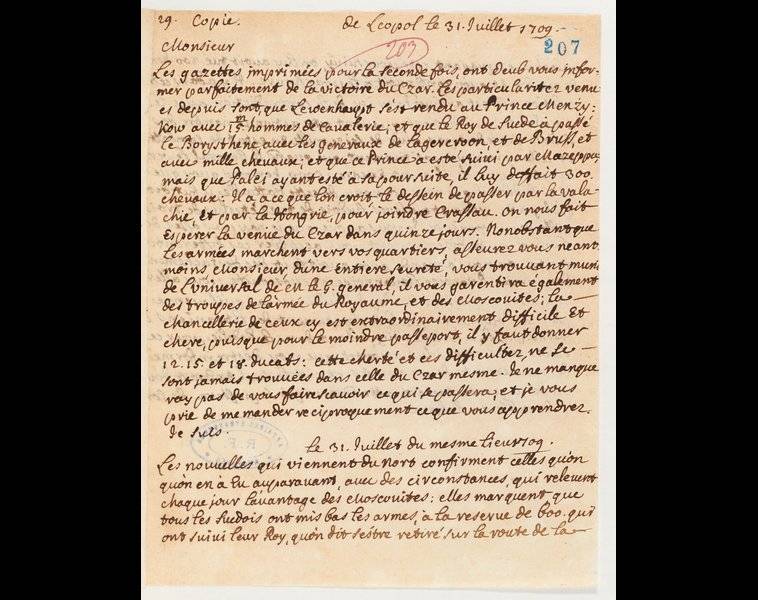 29. Copie.
de Leopol le 31. Juillet 1709.
203
207
Monsieur
Les gazettes imprimées pour la seconde fois, ont deub vous infor-
mer parfaitement de la victoire du Czar. Les particularitez venu-
es depuis sont, que Lewenhaupt s'est rendu au Prince Menzy:
kow avec 15 m hommes de Cavalerie; et que le Roy de Suede a passé
le Borysthene avec les generaux de Lagercroon, et de Bruss, et
avec mille chevaux; et que ce Prince a esté suivi par Mazeppa;
mais que Palei ayant esté à sa poursuite, il luy deffait 300
chevaux: Il a a ce que l'on croit le dessein de passer par la Vala-
chie, et par la Hongrie, pour joindre Crassau. On nous fait
esperer la venue du Czar dans quinze jours. Nonobstant que
les armées marchent vers vos quartiers, asseurez vous neant-
moins Monsieur d'une entiere seureté, vous trouvant muni
de l'universal de M. le G. general, il vous garentira également
des troupes de l'armée du Royaume, et des Moscouites; la
chancellerie de ceux cy est extraordinairement difficile et
chere, puisque pour le moindre passeport, il y faut donner
12. 15. et 18. ducats: cette cherté et ces difficultez ne se
sont jamais trouvées dans celle du Czar mesme. Je ne manque
ray pas de vous faire scavoir ce qui se passera; et je vous
prie de me mander reciproquement ce que vous apprendrez.
Je suis.
le 31. Juillet du mesme lieu 1709.
Les nouvelles qui viennent du Nort confirment celles qu'on
qu'on en à Eu auparavant, avec des circonstances, qui relevent
chaque jour l'avantage des Moscouites: elles marquent que
tous les Suedois ont mis bas les armes, à la reserve de 600. qui
ont suivi leur Roy, qu'on dit s'estre retiré sur la route de la